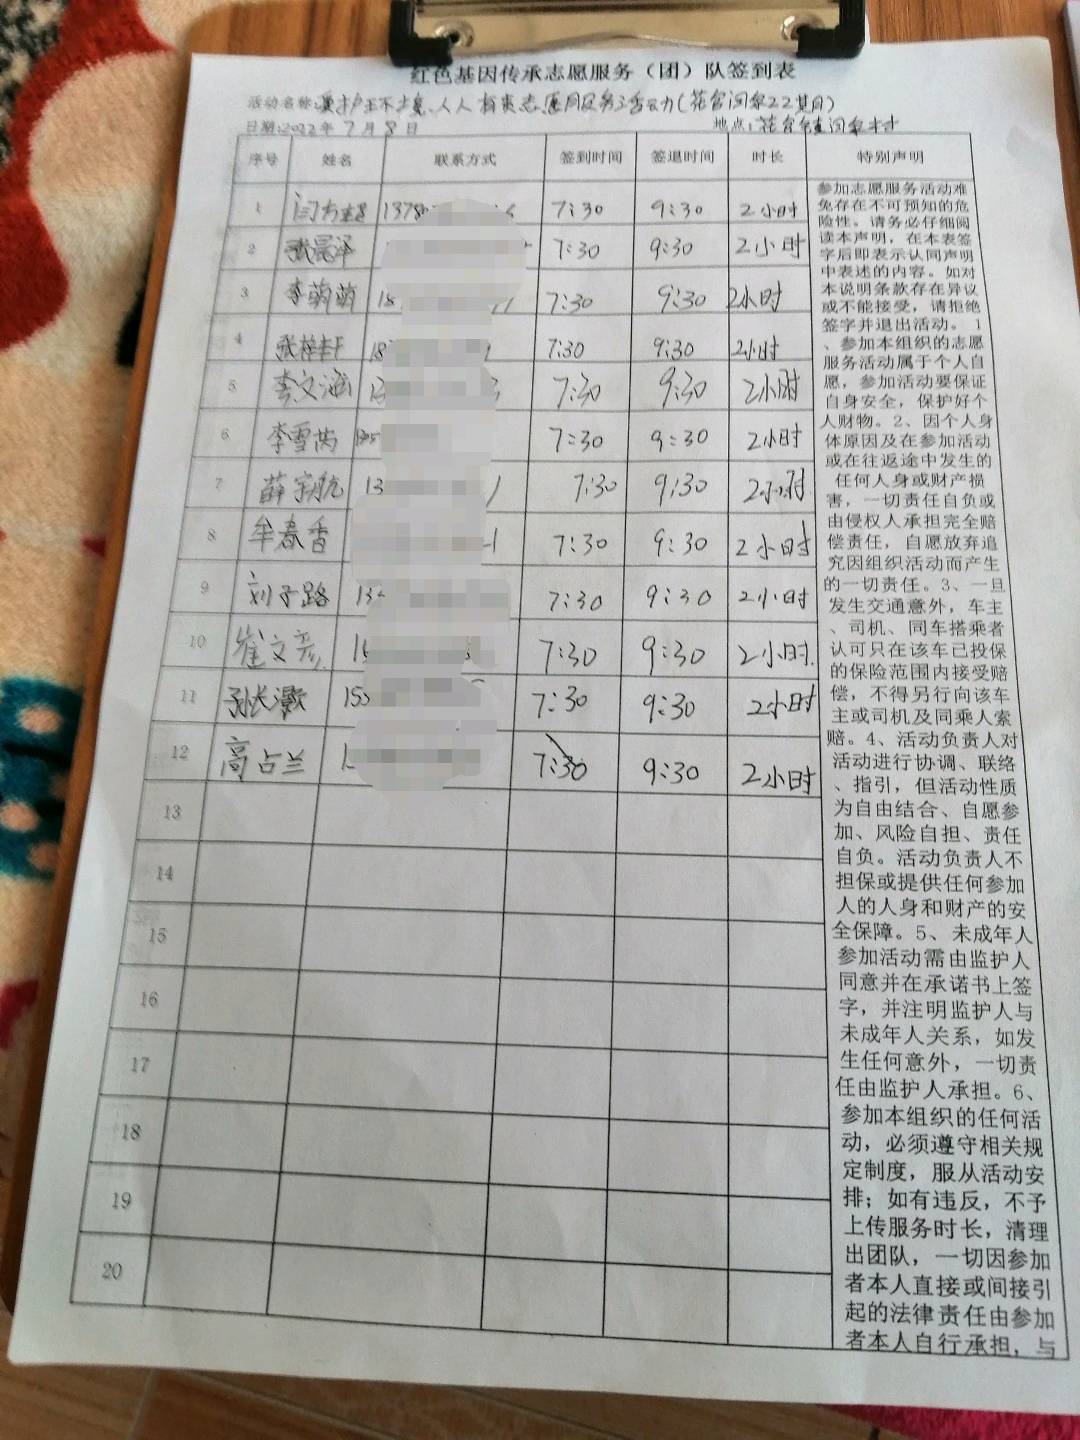 红色基因传承志愿服务（团）队签到表
活动名称:爱护环境、人人有责志愿服务活动(花官闫家22号)
日期:2022年7月8日 地点:花官镇闫家村
序号 姓名 联系方式 签到时间 签退时间 时长 特别声明
1 1378 7:30 9:30 2小时
2 张晨泽 7:30 9:30 2小时
3 李萌萌 18 7:30 9:30 2小时
4 张梓轩 18 7:30 9:30 2小时
5 李文涵 13 7:30 9:30 2小时
6 李雪芮 7:30 9:30 2小时
7 薛宇航 13 7:30 9:30 2小时
8 牟春香 7:30 9:30 2小时
9 刘子路 13 7:30 9:30 2小时
10 崔文彦 7:30 9:30 2小时.
11 孙长灏 155 7:30 9:30 2小时
12 高占兰 7:30 9:30 2小时
13
14
15
16
17
18
19
20
参加志愿服务活动难
免存在不可预知的危
险性。请务必仔细阅
读本声明，在本表签
字后即表示认同声明
中表述的内容。如对
本说明条款存在异议
或不能接受，请拒绝
签字并退出活动。1
、参加本组织的志愿
服务活动属于个人自
愿，参加活动要保证
自身安全，保护好个
人财物。2、因个人身
体原因及在参加活动
或在往返途中发生的
任何人身或财产损
害，一切责任自负或
由侵权人承担完全赔
偿责任，自愿放弃追
究因组织活动而产生
的一切责任。3、一旦
发生交通意外，车主
、司机、同车搭乘者
认可只在该车已投保
的保险范围内接受赔
偿，不得另行向该车
主或司机及同乘人索
赔。4、活动负责人对
活动进行协调、联络
、指引，但活动性质
为自由结合、自愿参
加、风险自担、责任
自负。活动负责人不
担保或提供任何参加
人的人身和财产的安
全保障。5、未成年人
参加活动需由监护人
同意并在承诺书上签
字，并注明监护人与
未成年人关系，如发
生任何意外，一切责
任由监护人承担。6、
参加本组织的任何活
动，必须遵守相关规
定制度，服从活动安
排；如有违反，不予
上传服务时长，清理
出团队，一切因参加
者本人直接或间接引
起的法律责任由参加
者本人自行承担，与